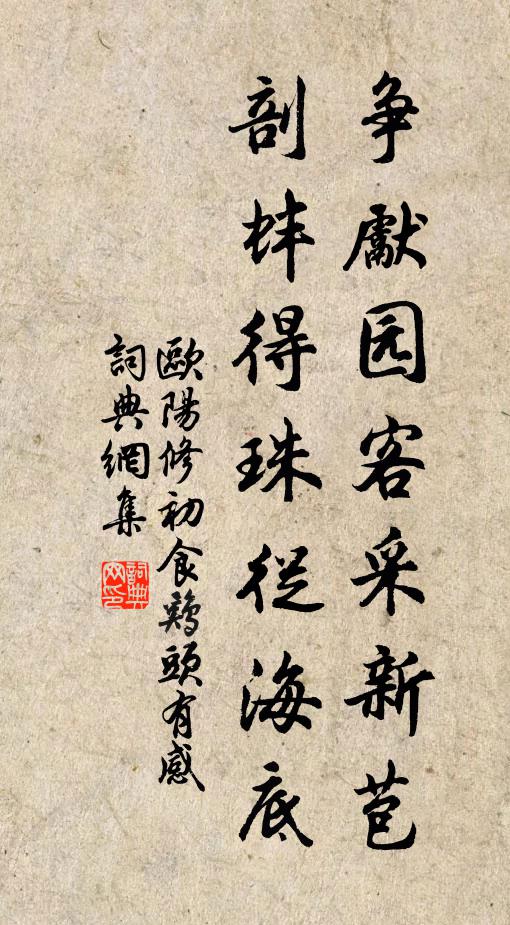 争獻园客采新苞
剖蚌得珠從海底
歐陽修初食鷄頭有感
詞典網集
詞典网印